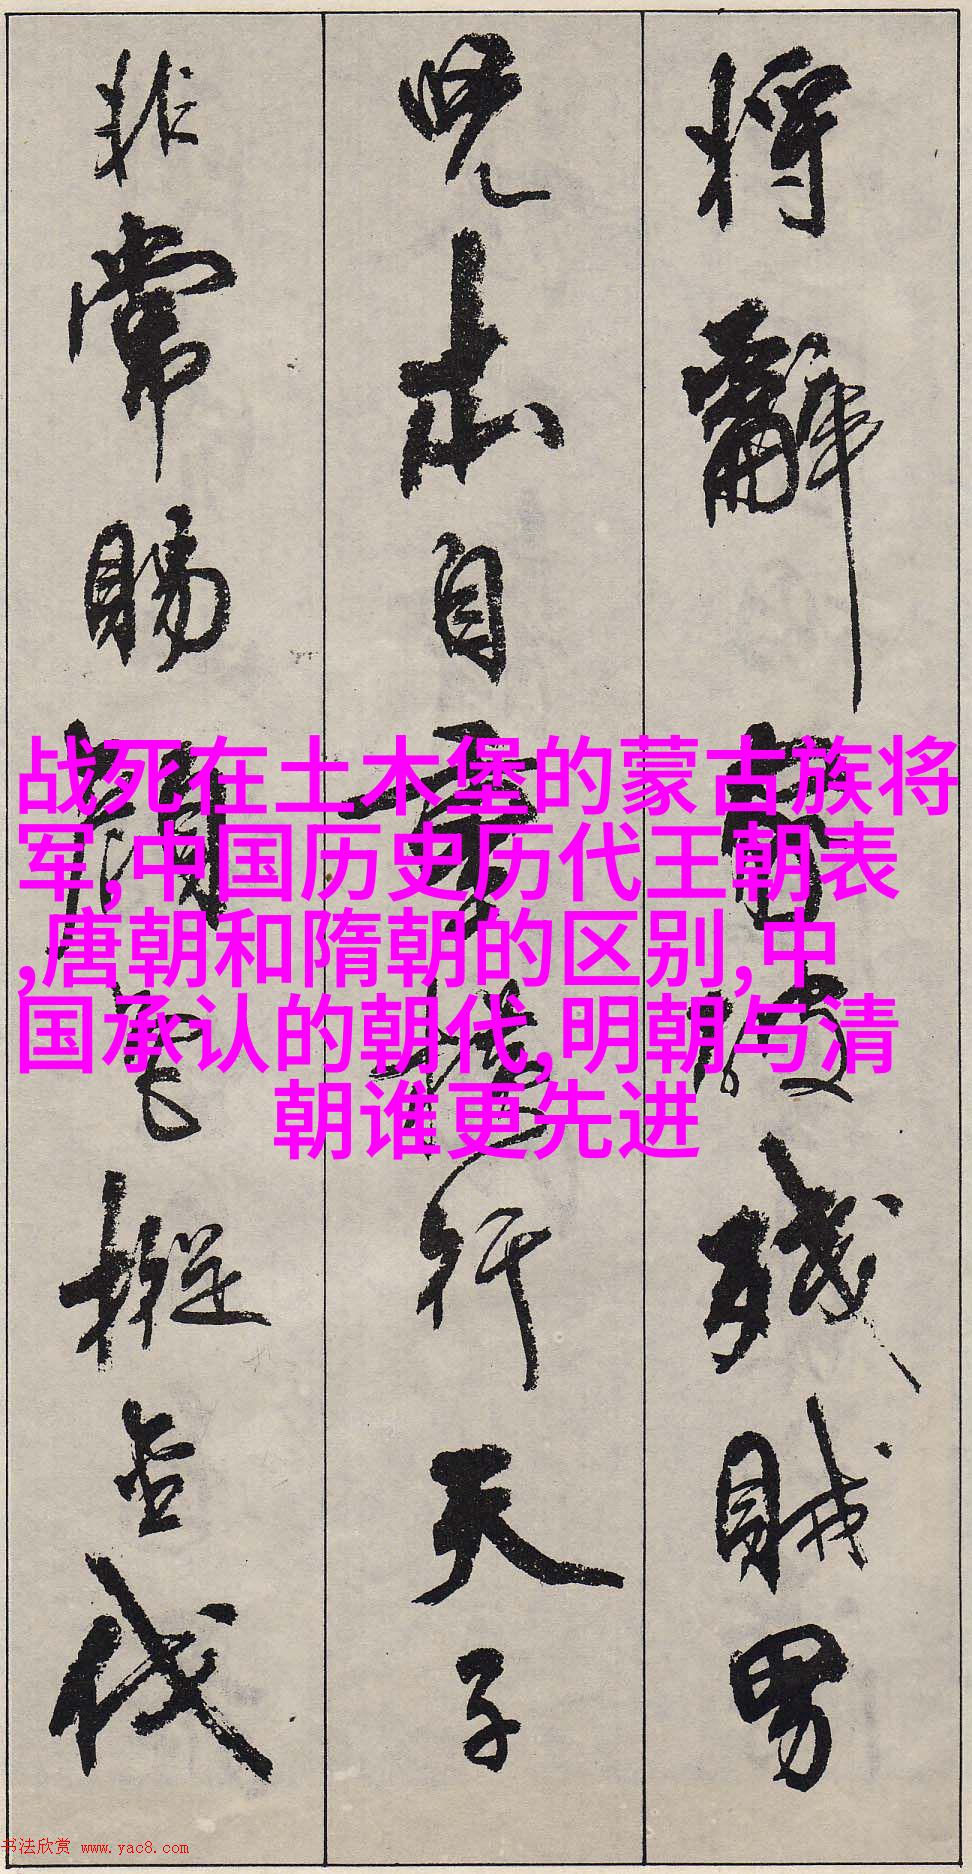 將辭家破殘賊男
兒本自重橫行天子
非常賜顏色摐金伐
战死在土木堡的蒙古族将
军,中国历史历代王朝表
,唐朝和隋朝的区别,中
国承认的朝代,明朝与清
朝谁更先进
书法欣赏 www.yac8.com